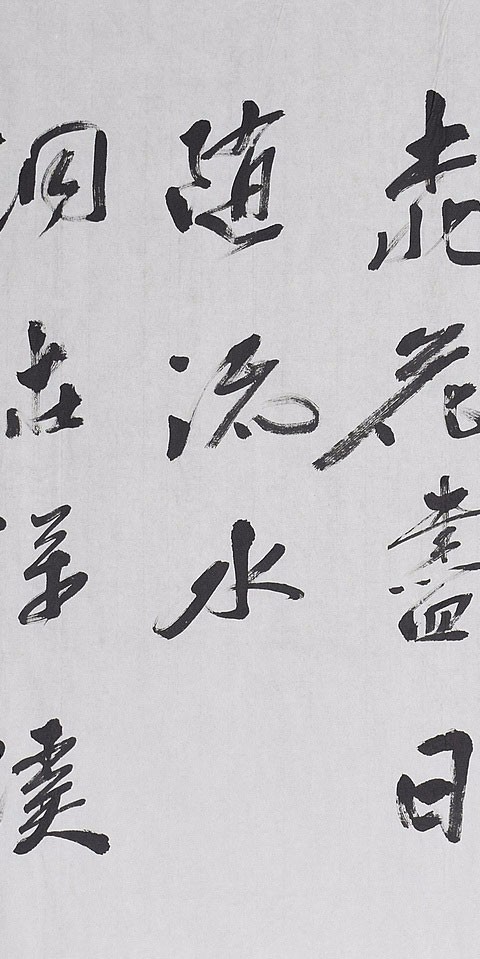 桃花盡日
随流水
洞在清溪